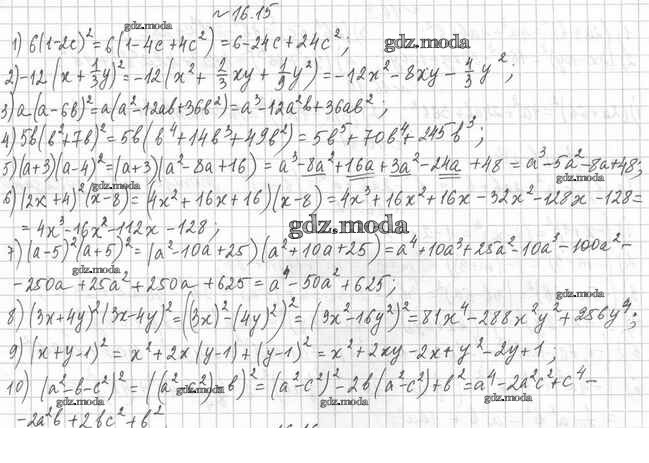 №16.15
gdz.moda
1) 6(1-2c)² = 6(1-4c+4c²) = 6-24c+24c²;
gdz.moda
2) -12(x+1/3y)² = -12(x²+2/3xy+1/9y²) = -12x²-8xy-4/3y²;
3) a(a-6b)² = a(a²-12ab+36b²) = a³-12a²b+36ab²;
4) 5b(b²+7b)² = 5b(b⁴+14b³+49b²) = 5b⁵+70b⁴+245b³;
5) (a+3)(a-4)² = (a+3)(a²-8a+16) = a³-8a²+16a+3a²-24a+48 = a³-5a²-8a+48;
gdz.moda gdz.moda
6) (2x+4)²(x-8) = (4x²+16x+16)(x-8) = 4x³+16x²+16x-32x²-128x-128=
= 4x³-16x²-112x-128;
gdz.moda
7) (a-5)²(a+5)² = (a²-10a+25)(a²+10a+25) = a⁴+10a³+25a²-10a³-100a²-
gdz.moda
-250a+25a²+250a+625 = a⁴-50a²+625;
gdz.moda
8) (3x+4y)²(3x-4y)² = ((3x)²-(4y)²)² = (9x²-16y²)² = 81x⁴-288x²y²+256y⁴;
9) (x+y-1)² = x²+2x(y-1)+(y-1)² = x²+2xy-2x+y²-2y+1;
10) (a²-b-c²)² = ((a²-c²)-b)² = (a²-c²)²-2b(a²-c²)+b² = a⁴-2a²c²+c⁴-
gdz.moda gdz.moda gdz.moda
-2a²b+2bc²+b²